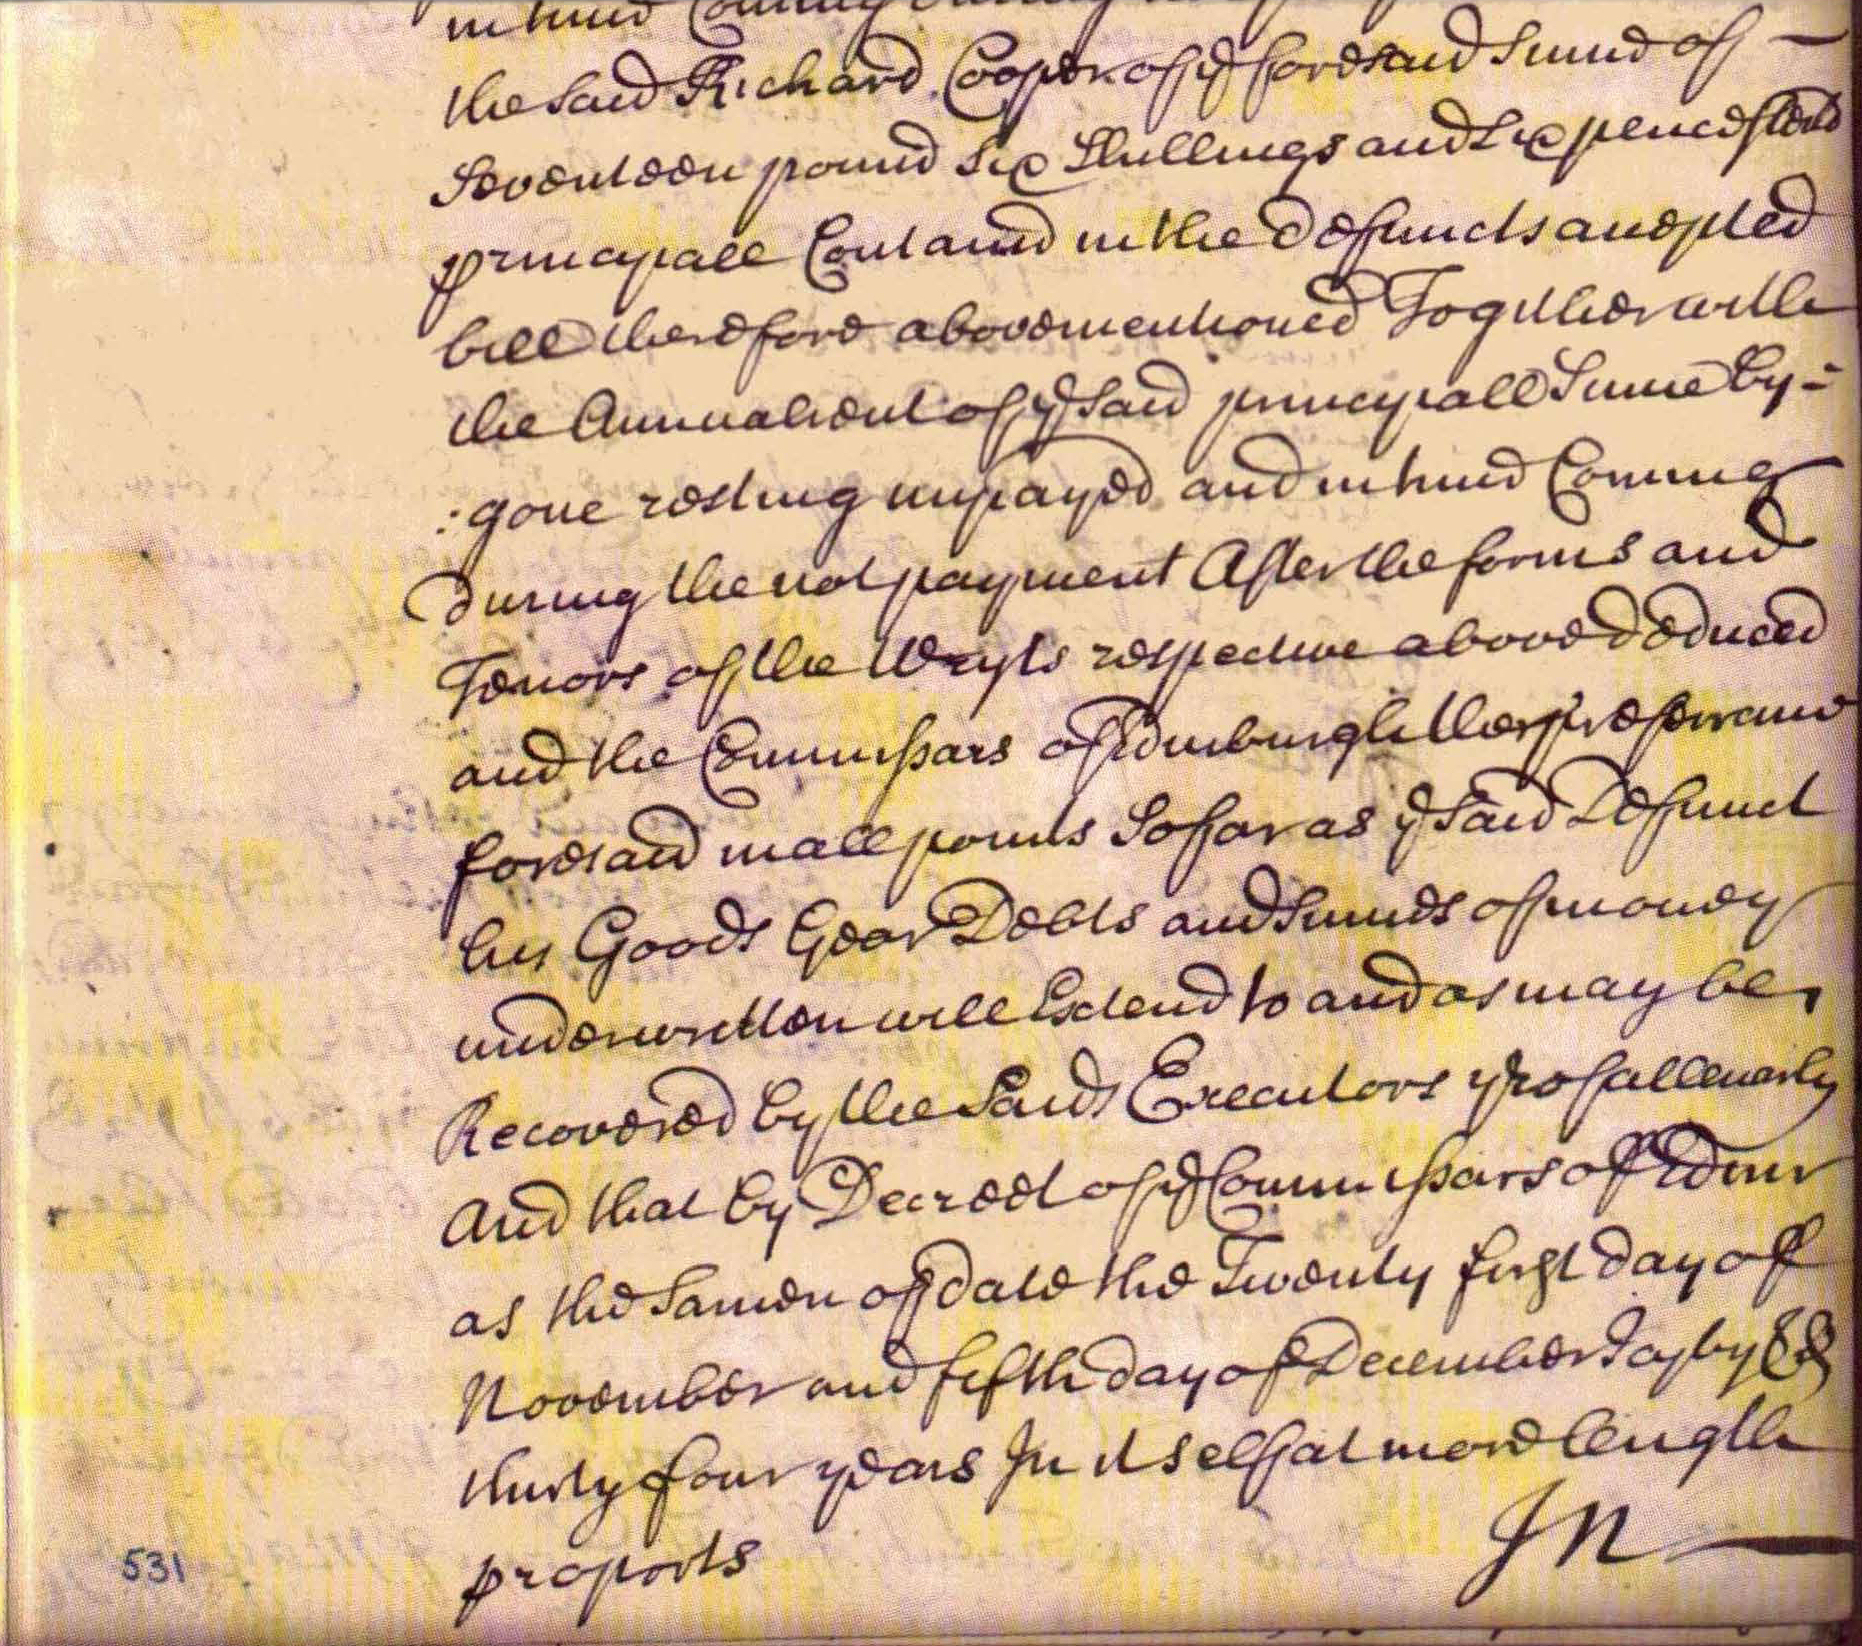 in time Coming during
the said Richard Cooper off ye forsaid Sume off —
Seventeen pound six Shillings and six pence sterl
principall Contained in the defuncts accepted
bill therefore abovementioned Together with
the Annualrent off ye said principall Sume by=
:gone resting unpayed and in time Coming
during the not payment After the forms and
Tenors off the Wryts respective above deduced
and the Commissars off Edinburgh ther
foresaid in all points So far as ye said Defunct
his Goods Gear Debts and Sumes off money
underwritten will Extend to and as may be
Recovered by the Saids Executors yrof allenarly
And that by Decreet off ye Commissars off Edinr
as the Samen off date the Twenty first day off
November and fifth day off December Jajvy &
thirty four years In itself at more length
proports
In —
531